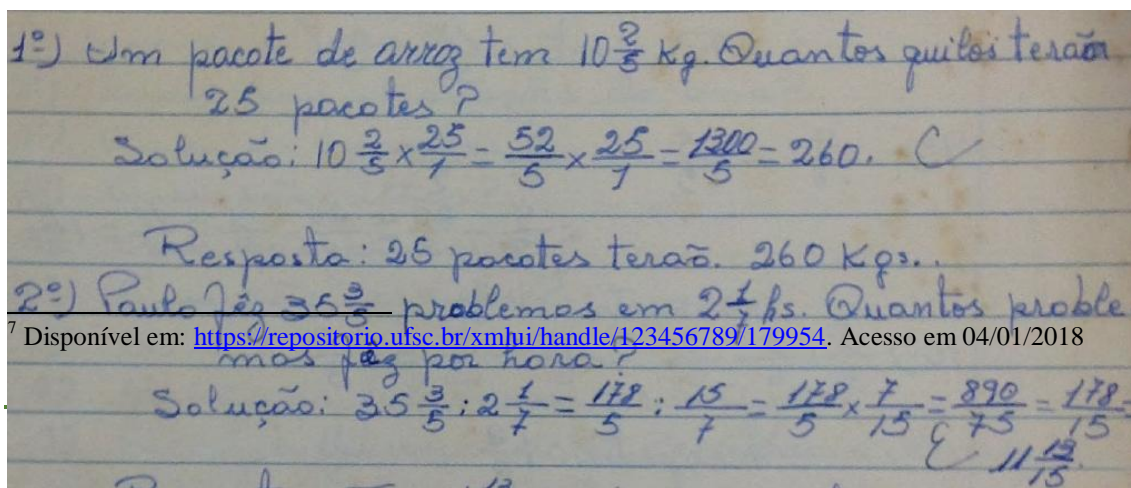 1º) Um pacote de arroz tem 10 2/5 Kg. Quantos quilos terão
25 pacotes?
Solução: 10 2/5 x 25/1 = 52/5 x 25/1 = 1300/5 = 260. C
Resposta: 25 pacotes terão. 260 Kgs..
2º) Paulo fêz 35 3/5 problemas em 2 1/7 hs. Quantos proble
7 Disponível em: https://repositorio.ufsc.br/xmlui/handle/123456789/179954. Acesso em 04/01/2018
mas fez por hora?
Solução: 35 3/5 : 2 1/7 = 178/5 : 15/7 = 178/5 x 7/15 = 890/75 = 178/15 =
C 11 13/15